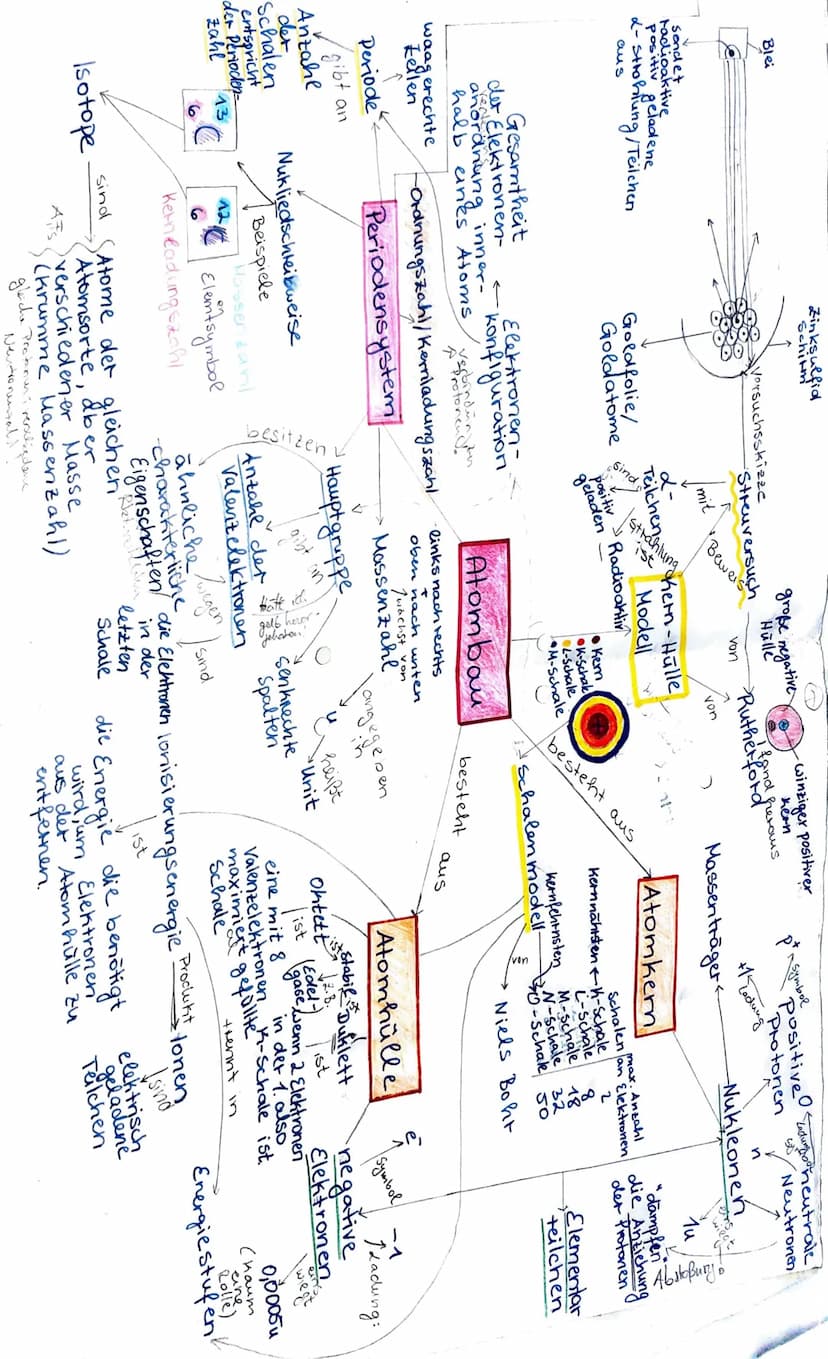 Blei
sendet
radioaktive
positiv geladene
α-Strahlung/Teilchen
aus
Zinksulfid
Schirm
Goldfolie/
Goldatome
Versuchsskizze
Streuversuch
mit
Beweis
α-
Teilchen
sind
positiv
geladen
Strahlung
ist
Radioaktiv
Kern-Hülle
Modell
von
von
Rutherford
fand heraus
große negative
Hülle
winziger positiver
Kern
Kern
K-Schale
L-Schale
M-Schale
Atombau
besteht aus
besteht aus
Atomkern
Massenträger
Nukleonen
positive
Protonen
Symbol
p+
Ladung
+1
neutrale
Neutronen
0
n
eins
wiegt
1u
Abstoßung
"dämpfen"
die Anziehung
der Protonen
Elementar
teilchen
Schalenmodell
von
Niels Bohr
Schalen
max. Anzahl
an Elektronen
kernnächsten ← K-Schale 2
L-Schale 8
M-Schale 18
kernfernsten
N-Schale 32
O-Schale 50
Atomhülle
negative
Elektronen
Symbol
e-
Ladung:
-1
eins
wiegt
0,0005u
(kaum
eine
Rolle)
Oktett
ist stabil
z.B.
(Edel-
gase)
Duklett
ist
ist
wenn 2 Elektronen
in der 1. also
K-Schale ist
eine mit 8
Valenzelektronen
maximal gefüllte
Schale
Energiestufen
trennt in
Ionisierungsenergie
ist
die Energie die benötigt
wird, um Elektronen
aus der Atomhülle zu
entfernen.
Produkt
Ionen
sind
elektrisch
geladene
Teilchen
Periodensystem
Ordnungszahl/Kernladungszahl
Elektronen-
konfiguration
Gesamtheit
der Elektronen-
anordnung inner-
halb eines Atoms
Periode
waagerechte
Zeilen
gibt an
Anzahl
der
Schalen
entspricht
der Perioden-
zahl
Nukliedschreibweise
Beispiele
13
6 C
12
6 C
Massenzahl
Elemtsymbol
Kernladungszahl
Isotope
sind
Atome der gleichen
Atomsorte, aber
verschiedener Masse
(krumme Massenzahl)
Hauptgruppe
besitzen
ähnliche
charakterliche
Eigenschaften
wegen
gibt an
Anzahl der
Valenzelektronen
sind
die Elektronen
in der
letzten
Schale
senkrechte
Spalten
Massenzahl
wächst von
links nach rechts
oben nach unten
angegeben
in
u
heißt
Unit